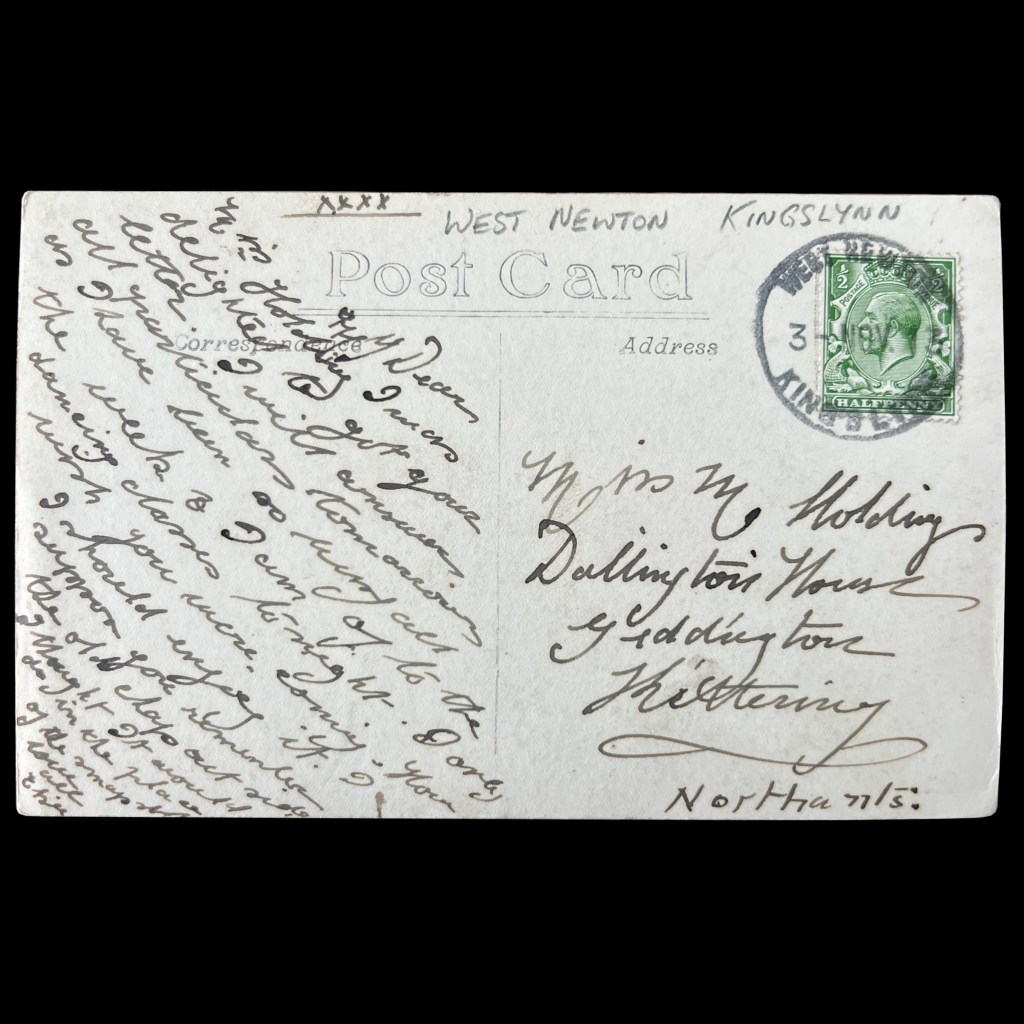 xxxx
WEST NEWTON KINGSLYNN
Post Card
Correspondence
Address
WEST NEWTON
3 NOV
KINGS LYNN
½
POSTAGE
HALFPENNY
My Dear
Miss Holding I was
delighted to get your
letter. I will answer
all questions tomorrow
as I have been so busy all
the week & I am off to the
dancing classes to-night. I only
wish you were coming. How
I should enjoy it. I
suppose you remember
the old chap out side
I thought it would
do in the place
of the snapshot
Miss M Holding
Dallington House
Geddington
Kettering
Northants: